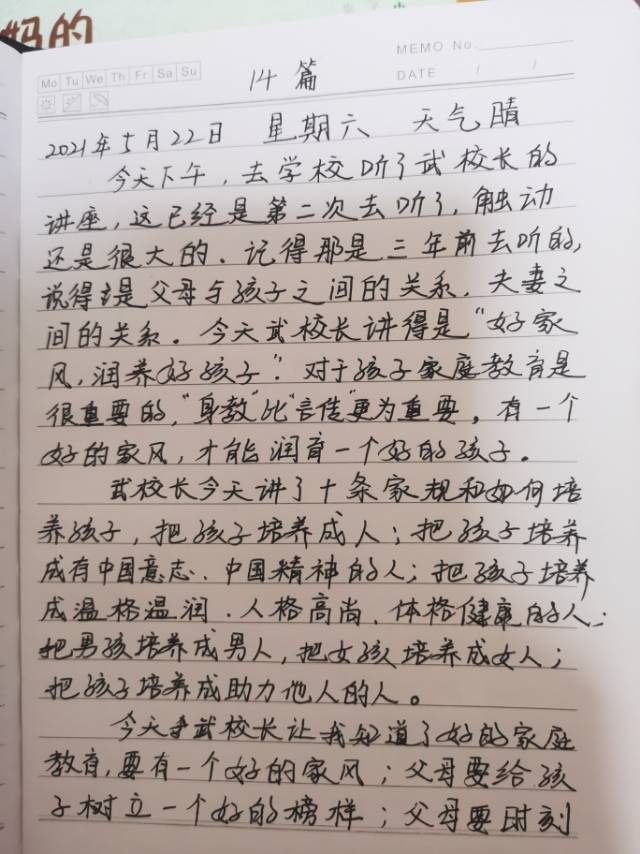 妈的
Mo Tu We Th Fr Sa Su
MEMO No.
DATE / /
14 篇
2021年5月22日 星期六 天气晴
今天下午，去学校听了武校长的
讲座，这已经是第二次去听了，触动
还是很大的．记得那是三年前去听的，
说得是父母与孩子之间的关系．夫妻之
间的关系。今天武校长讲得是“好家
风，润养好孩子”．对于孩子家庭教育是
很重要的，“身教”比“言传”更为重要。有一个
好的家风，才能润育一个好的孩子。
武校长今天讲了十条家规和如何培
养孩子，把孩子培养成人；把孩子培养
成有中国意志．中国精神的人；把孩子培养
成温格温润．人格高尚．体格健康的人；
把男孩培养成男人，把女孩培养成女人；
把孩子培养成助力他人的人。
今天武校长让我知道了好的家庭
教育，要有一个好的家风；父母要给孩
子树立一个好的榜样；父母要时刻